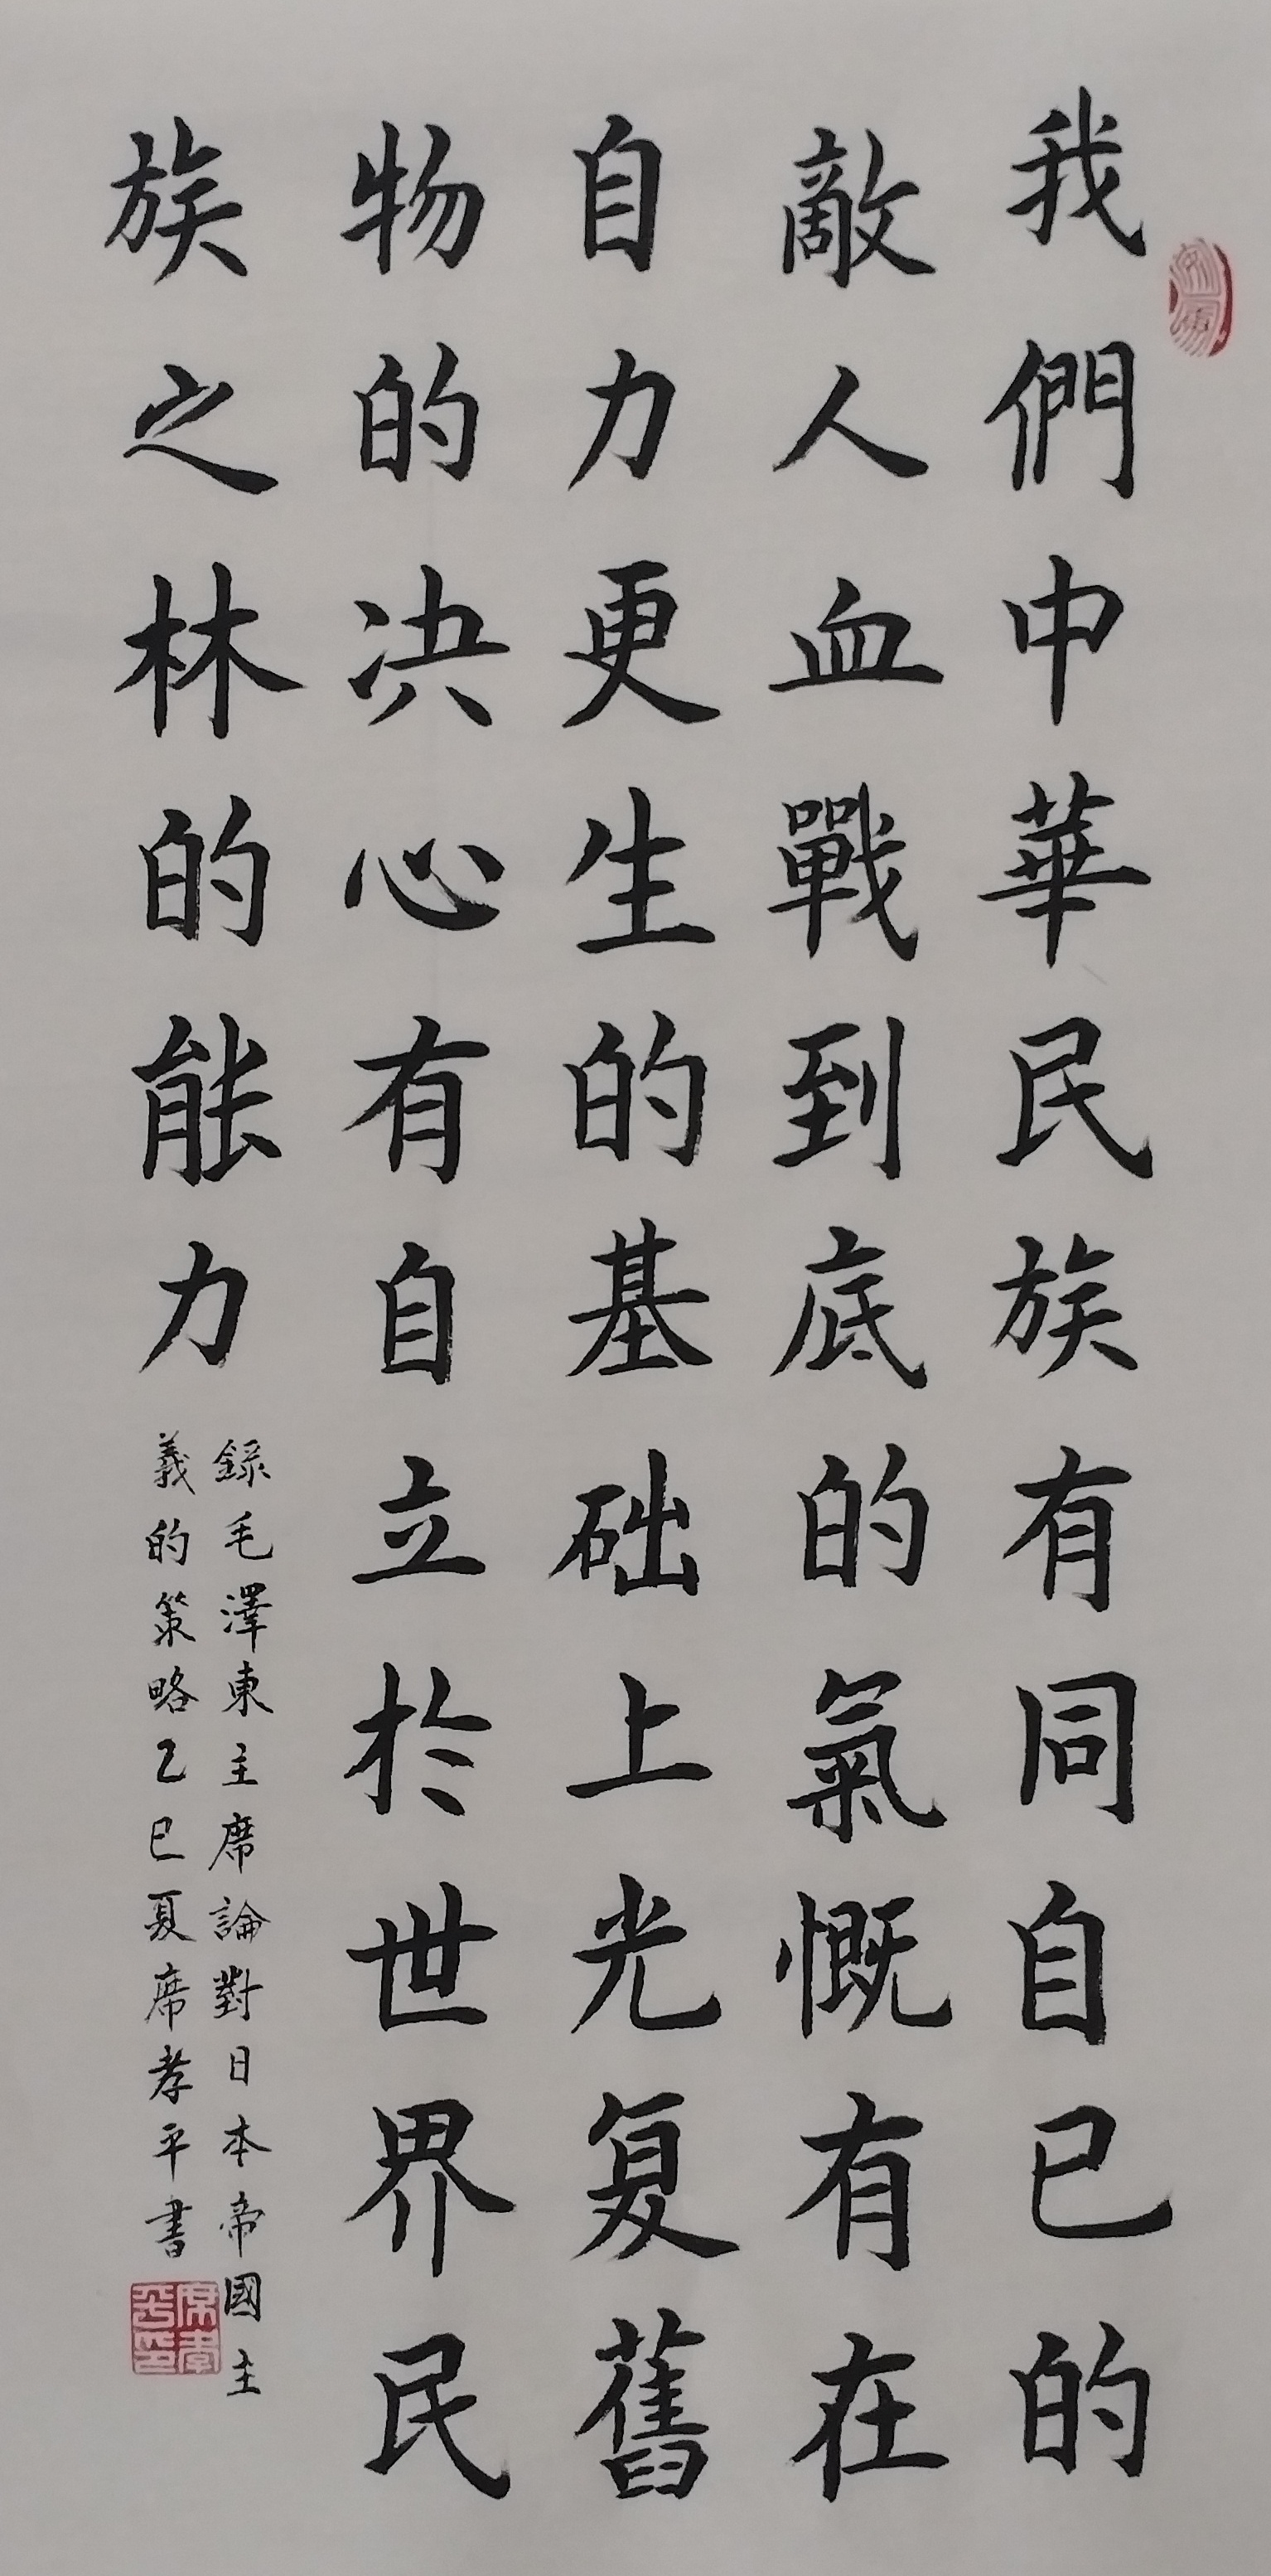 我們中華民族有同自己的
敵人血戰到底的氣慨有在
自力更生的基础上光复舊
物的决心有自立於世界民
族之林的能力
録毛澤東主席論對日本帝國主
義的策略乙巳夏席孝平書
席孝平印